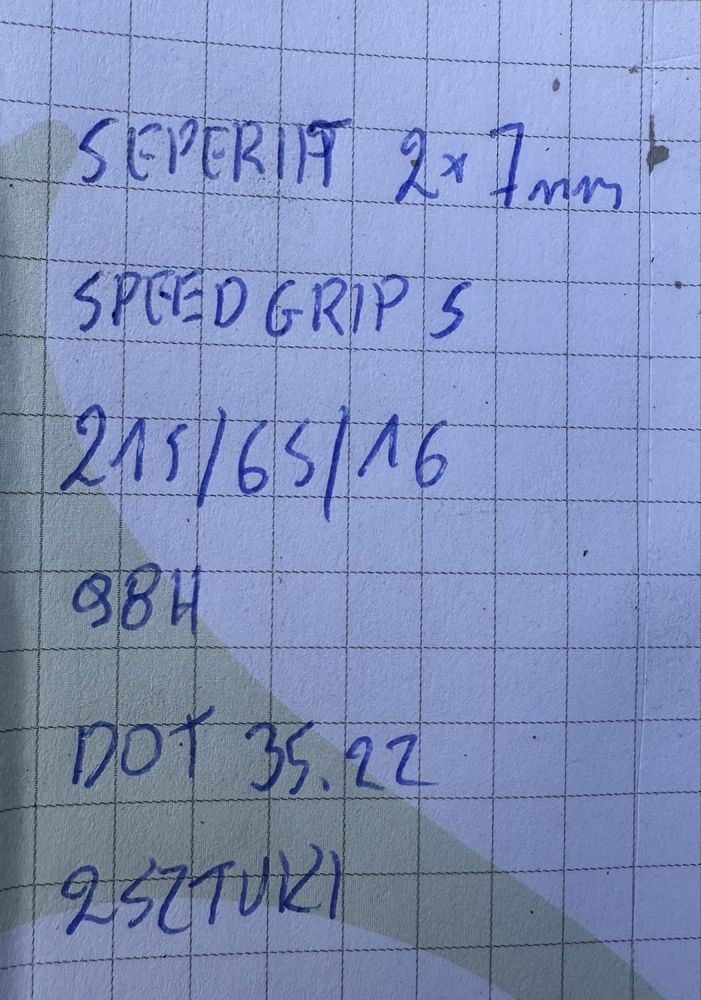 SEPERIIT 2x7mm
SPEED GRIP 5
215/65/16
98H
DOT 35.22
2 SZTUKI